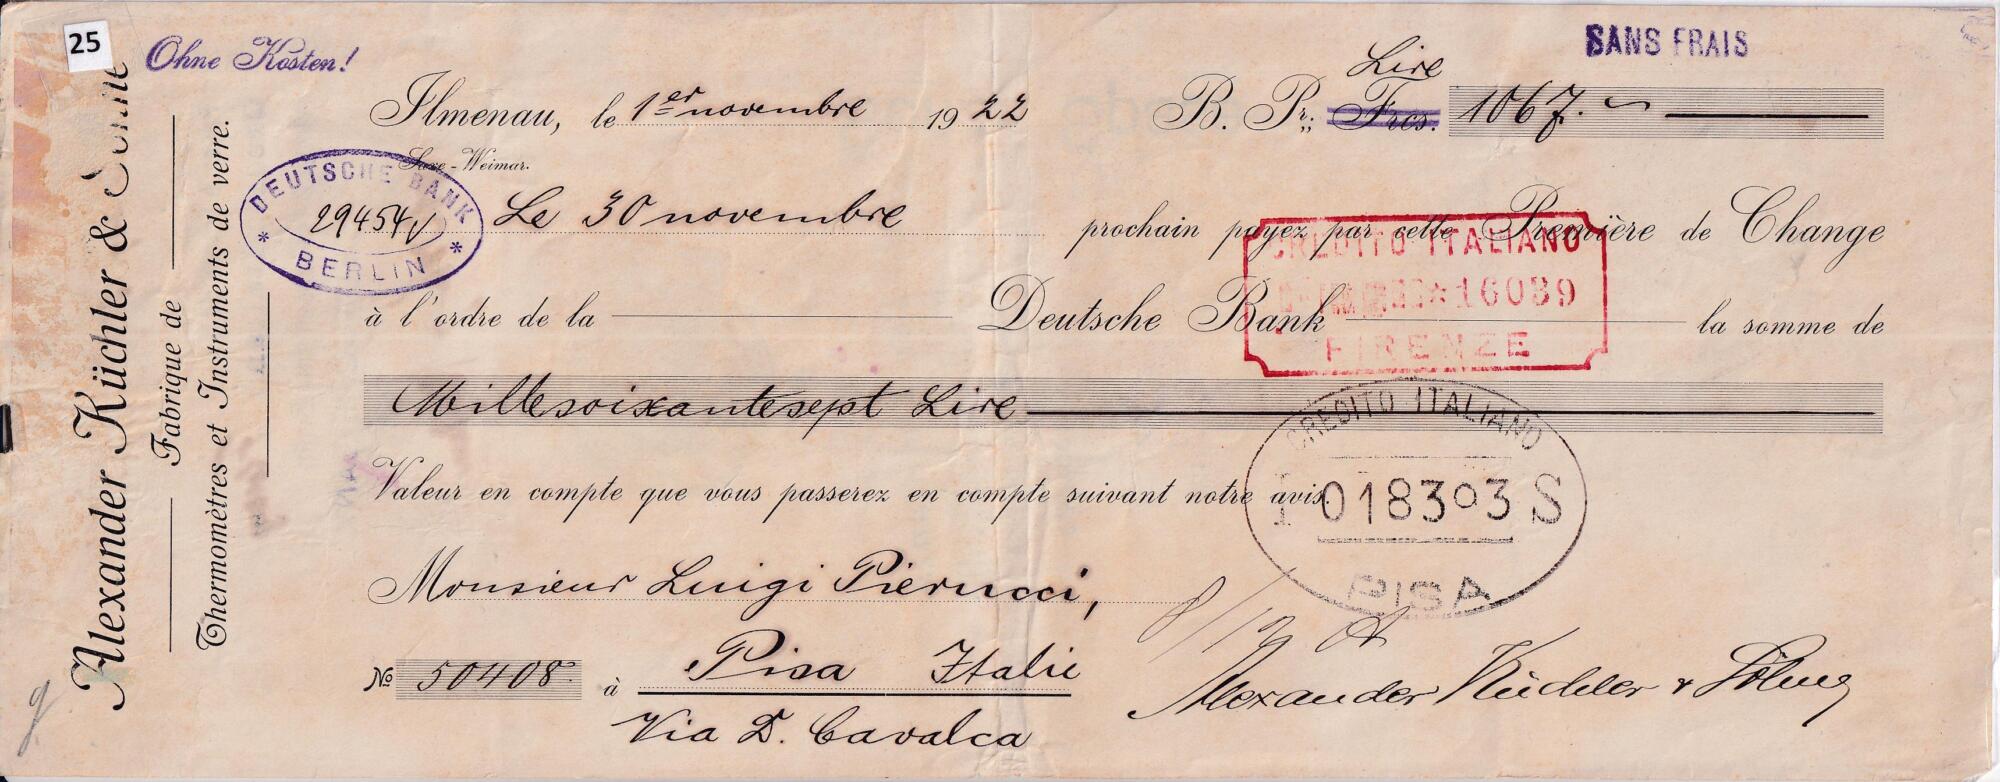 25
Ohne Kosten!
SANS FRAIS
Alexander Küchler &
Fabrique de
Thermomètres et Instruments de verre.
Ilmenau, le 1er novembre 1922
Saxe-Weimar.
Lire
B. Pr. Frcs. 1067.
DEUTSCHE BANK
29454
* BERLIN *
Le 30 novembre prochain payez par cette Première de Change
CREDITO ITALIANO
*16039
FIRENZE
à l'ordre de la Deutsche Bank la somme de
Millesoixantesept Lire
CREDITO ITALIANO
018303 S
PISA
Valeur en compte que vous passerez en compte suivant notre avis.
Monsieur Luigi Pierucci,
No 50408 à Pisa Italie
Via D. Cavalca
Alexander Küchler & Söhne